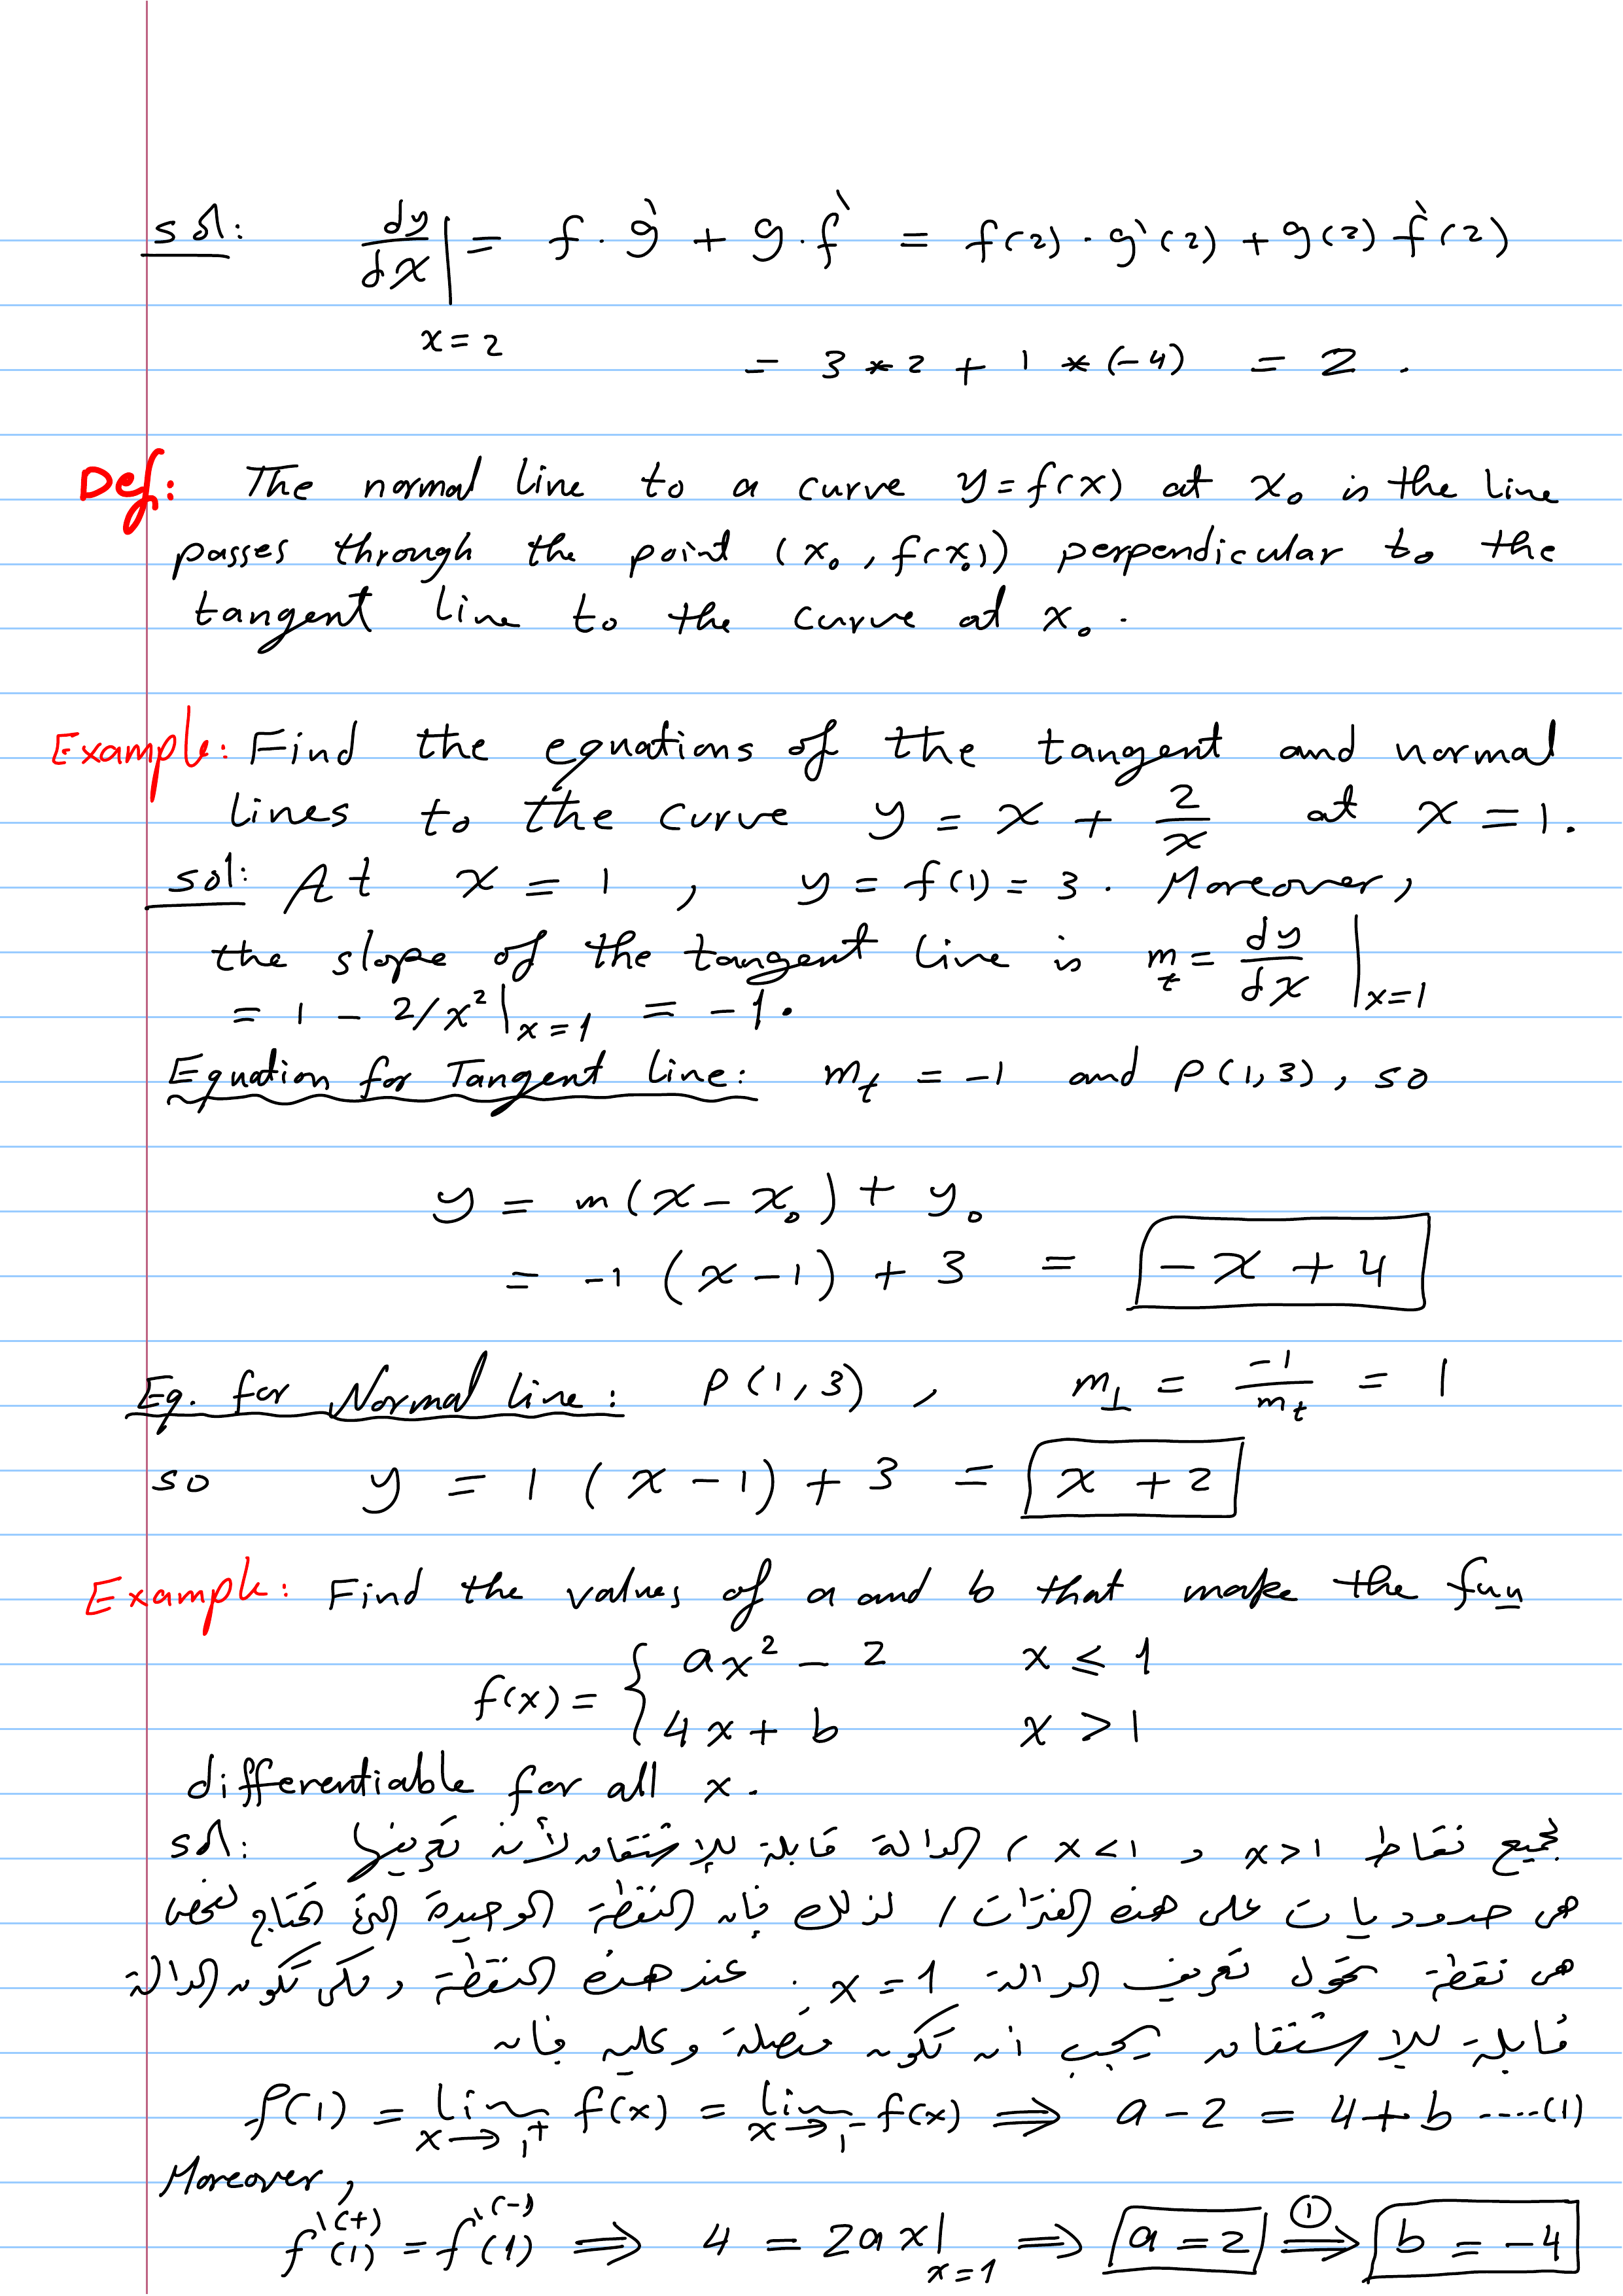 sol: dy/dx |x=2 = f · g` + g · f` = f(2) · g`(2) + g(2) f`(2)
= 3 * 2 + 1 * (-4) = 2 .
Def: The normal line to a curve y = f(x) at x₀ is the line
passes through the point (x₀, f(x₀)) perpendicular to the
tangent line to the curve at x₀.
Example: Find the equations of the tangent and normal
lines to the curve y = x + 2/x at x = 1.
sol: At x = 1 , y = f(1) = 3 . Moreover,
the slope of the tangent line is mₜ = dy/dx |x=1
= 1 - 2/x² |x=1 = -1.
Equation for Tangent line: mₜ = -1 and P(1,3), so
y = m(x - x₀) + y₀
= -1 (x - 1) + 3 = - x + 4
Eq. for Normal line: P(1,3) , m⊥ = -1/mₜ = 1
so y = 1 (x - 1) + 3 = x + 2
Example: Find the values of a and b that make the fun
f(x) = { ax² - 2 x ≤ 1
4x + b x > 1
differentiable for all x.
sol: لجميع نقاط x>1 و x<1 ، الدالة قابلة للإشتقاق لأن تعريفها
هي حدوديات على هذه الفترات، لذلك فإن النقطة الوحيدة التي تحتاج لفحص
هي نقطة تحول تعريف الدالة x = 1 . عند هذه النقطة ولكي تكون الدالة
قابلة للإشتقاق يجب ان تكون متصلة وعليه فإن
f(1) = lim x→1⁺ f(x) = lim x→1⁻ f(x) ⟹ a - 2 = 4 + b ....(1)
Moreover,
f`⁽⁺⁾(1) = f`⁽⁻⁾(1) ⟹ 4 = 2ax |x=1 ⟹ a = 2 ⟹① b = -4